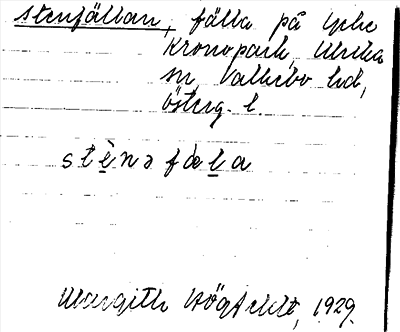 stenfällan, fälla på Yche
Kronopark, Ulrika
sn, Vallebo hd,
Österg. l.
stènə fæla
Margith Högfeldt, 1929.